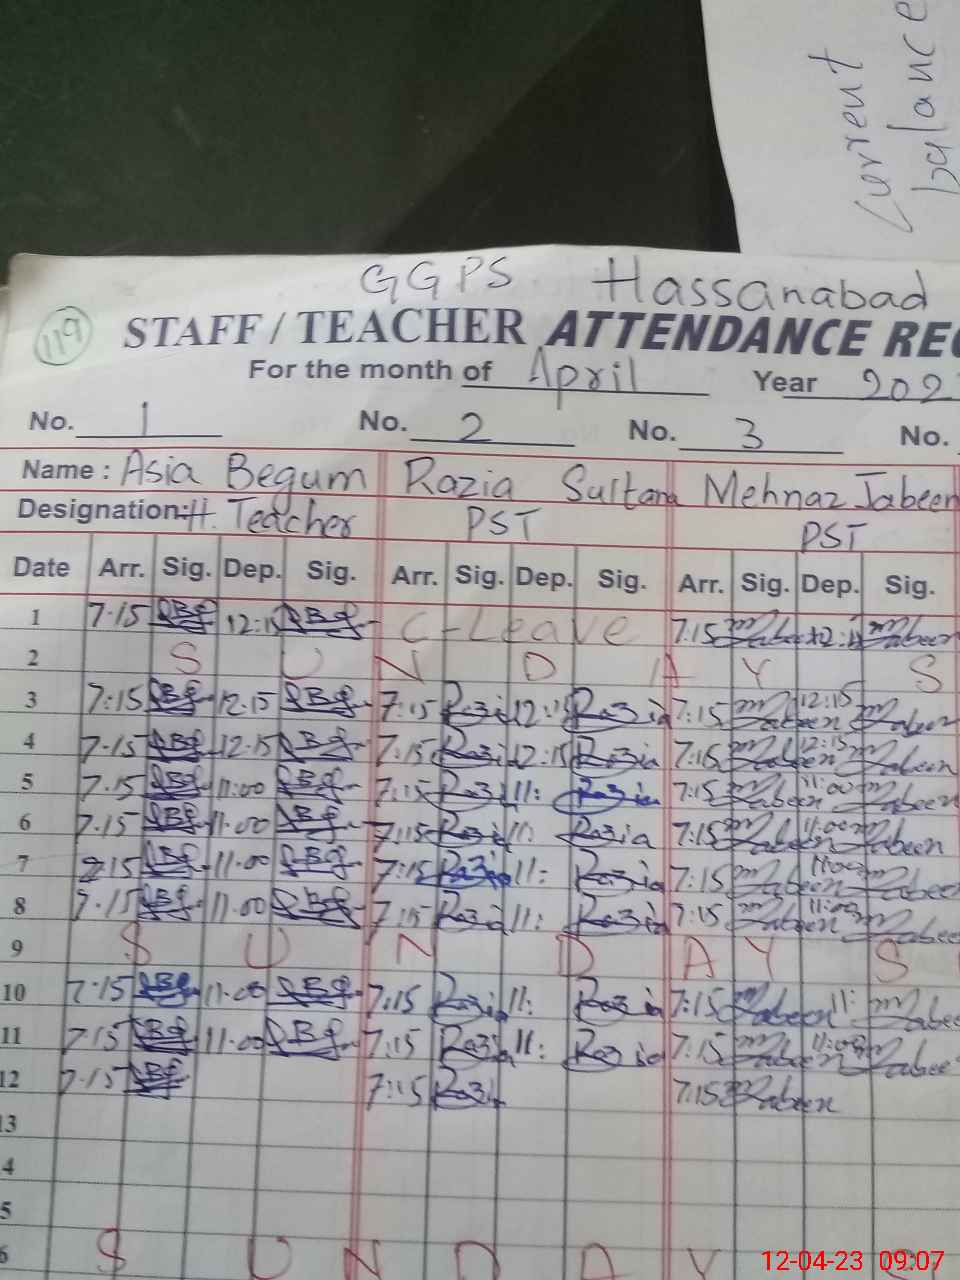 Current
balance
GGPS Hassanabad
119
STAFF / TEACHER ATTENDANCE REC
For the month of April Year 202
No. 1 No. 2 No. 3 No.
Name : Asia Begum Razia Sultana Mehnaz Jabeen
Designation: H. Teacher PST PST
Date Arr. Sig. Dep. Sig. Arr. Sig. Dep. Sig. Arr. Sig. Dep. Sig.
1 7.15 12.15 C-Leave 7:15 Jabeen 12:15 Jabeen
2 S U N D A Y S
3 7:15 12.15 7:15 Razia 12:15 Razia 7:15 Jabeen 12:15 Jabeen
4 7.15 12.15 7:15 Razia 12:15 Razia 7:15 Jabeen 12:15 Jabeen
5 7.15 11:00 7:15 Razia 11: Razia 7:15 Jabeen 11:00 Jabeen
6 7.15 11.00 7:15 Razia 11: Razia 7:15 Jabeen 11:00 Jabeen
7 7.15 11.00 7:15 Razia 11: Razia 7:15 Jabeen 11:00 Jabeen
8 7.15 11.00 7:15 Razia 11: Razia 7:15 Jabeen 11:00 Jabeen
9 S U N D A Y S
10 7.15 11.00 7:15 Razia 11: Razia 7:15 Jabeen 11: Jabeen
11 7.15 11.00 7:15 Razia 11: Razia 7:15 Jabeen 11:00 Jabeen
12 7.15 7:15 Razia 7:15 Jabeen
13
4
5
6 S U N D A Y
12-04-23 09:07